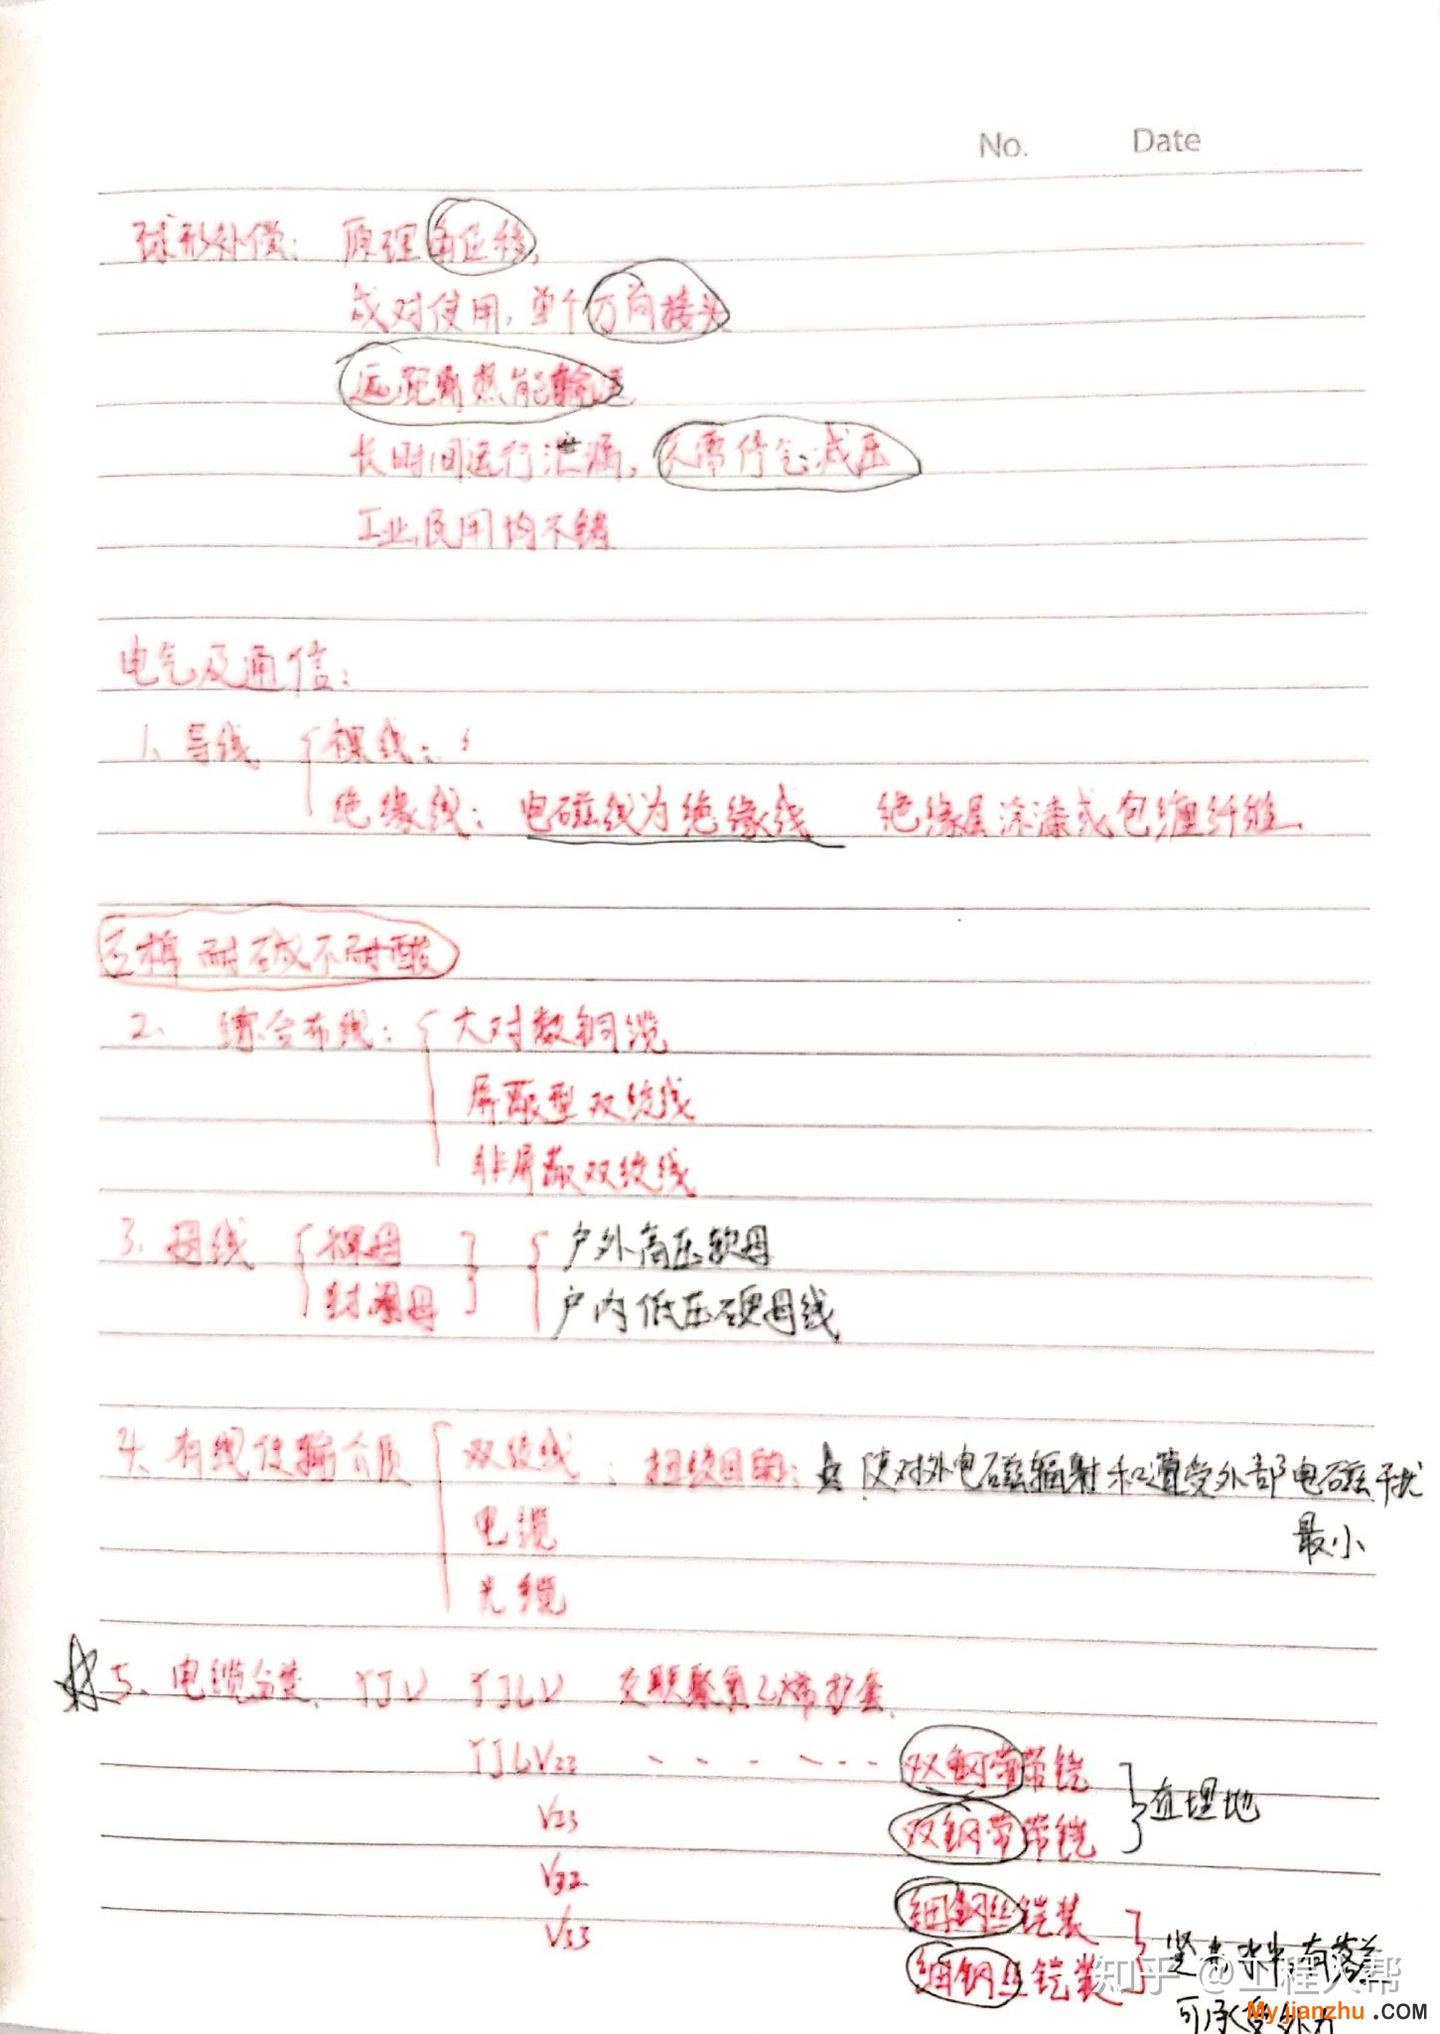 No. Date
球形补偿: 原理角位移,
成对使用, 单个万向接头
远距离热能输送
长时间运行泄漏, 需停气减压
工业,民用均不错
电气及通信:
1、导线 { 裸线:
绝缘线: 电磁线为绝缘线 绝缘层涂漆或包缠纤维
耐碱不耐酸
2、 综合布线: { 大对数铜缆
屏蔽型双绞线
非屏蔽双绞线
3. 母线 { 裸母 } { 户外高压软母
封闭母 户内低压硬母线
4. 有线传输介质 { 双绞线 : 扭绞目的: 使对外电磁辐射和遭受外部电磁干扰
最小
电缆
光缆
☆ 5、电缆分类. YJV YJLV 交联聚氯乙烯护套.
YJLV22 - - - - - - 双钢带带铠 } 直埋地
V23 双钢带带铠
V32 细钢丝铠装 } 竖井水中,有落差
V33 细钢丝铠装
可承受外力
知乎 @工程人帮
Myjianzhu.COM